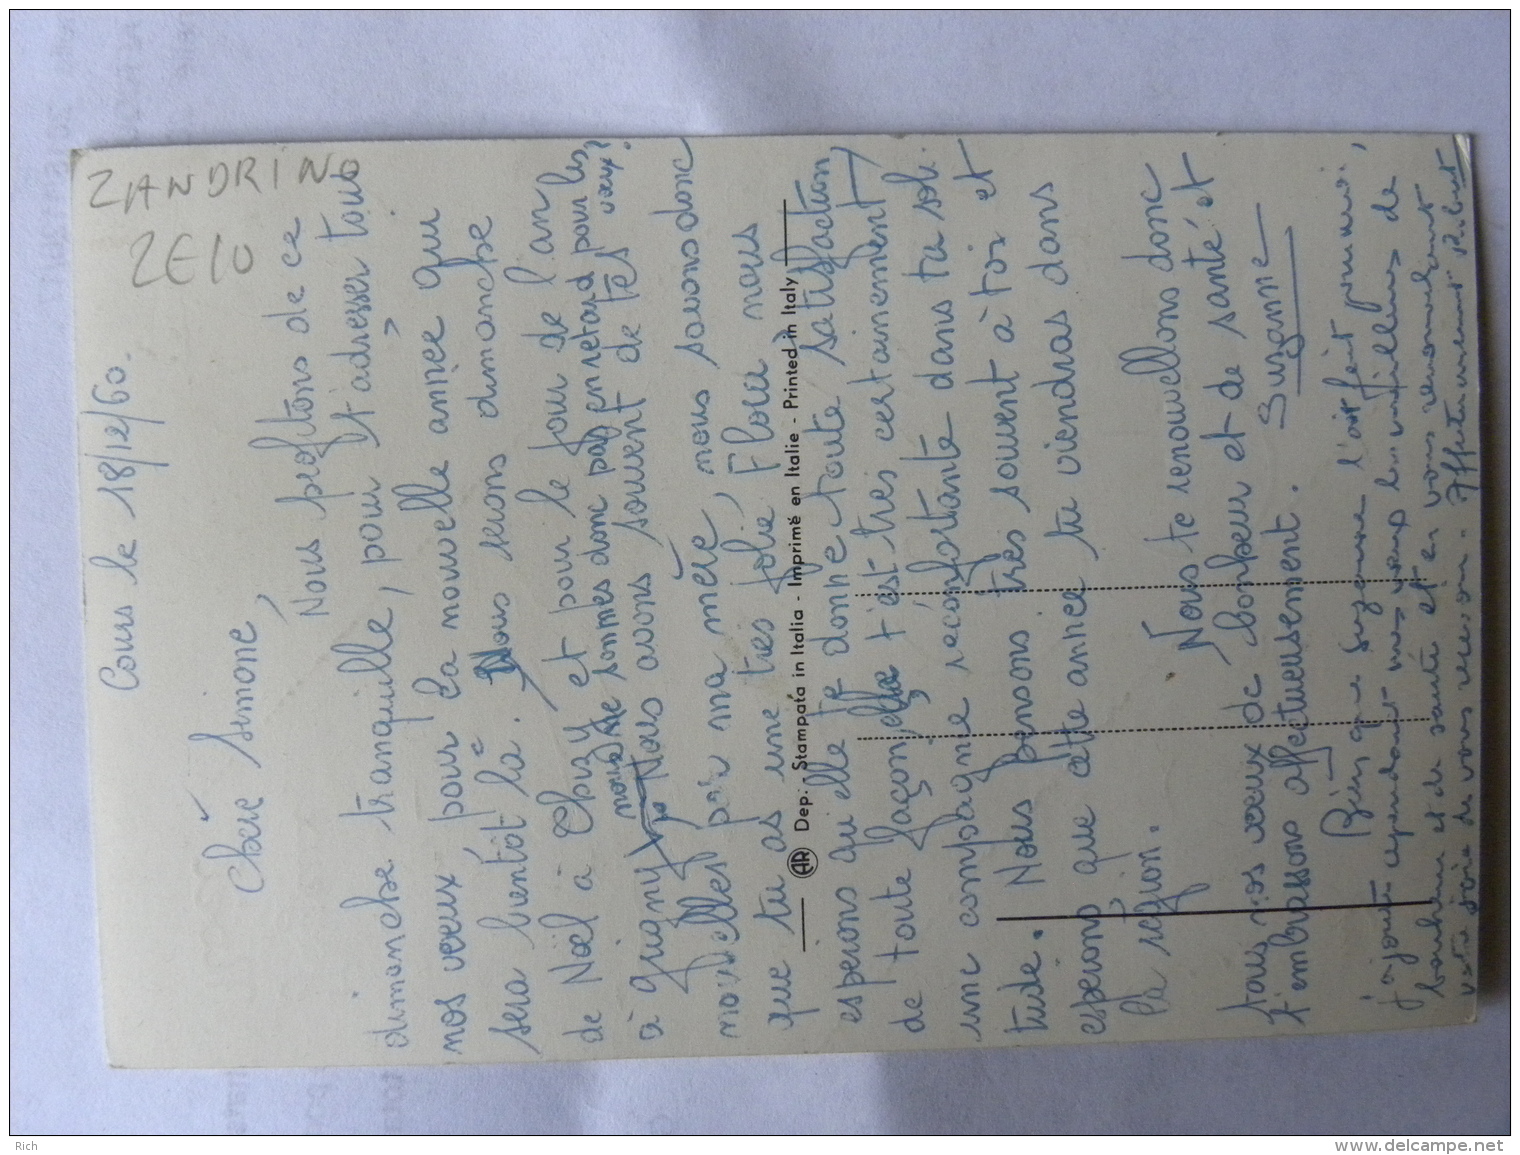 ZANDRINO
ZEIO
Cours le 18/12/60.
Chère Simone,
Nous profitons de ce
dimanche tranquille, pour t'adresser tous
nos voeux pour la nouvelle année qui
sera bientôt là. Nous serons dimanche
de Noël à Choisy et pour le jour de l'an
à Quigny nous ne sommes donc pas en retard pour les voeux?
Nous avons souvent de tes
nouvelles par ma mère, nous savons donc
que tu as une très jolie Flora nous
esperons qu'elle te donne toute satisfaction
de toute façon, elle t'est très certainement
une compagne réconfortante dans ta soli-
tude. Nous pensons très souvent à toi et
esperons que cette année tu viendras dans
la région.
Nous te renouvellons donc
tous nos voeux de bonheur et de santé et
t'embrassons affectueusement. Suzanne
Bien que Suzanne l'ait fait pour moi,
j'ajoute cependant mes voeux les meilleurs de
bonheur et de santé et en vous renouvelant
votre joie de vous revoir. Affectueusement Robert
AR Dep: - Stampata in Italia - Imprimé en Italie - Printed in Italy
Rich
www.delcampe.net